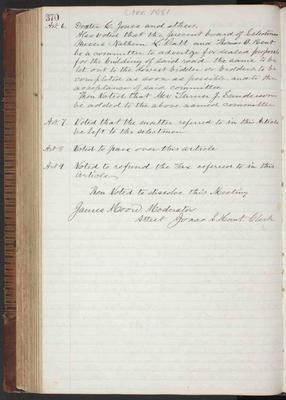 370
Nov. 1881
Art. 6. Dexter C. Jones and others.
Also voted that the present board of Selectmen
Messrs Nathan K. Pratt and Thomas O. Hunt
be a committee to advertise for sealed proposals
for the building of said road the same to be
let out to the lowest bidder or bidders to be
completed as soon as possible and to the
acceptance of said committee
Then Voted that Mr. J. Sanderson
be added to the above named committee
Art. 7. Voted that the matter referred to in this Article
be left to the selectmen
Art 8 Voted to pass over this article
Art 9 Voted to refund the Tax referred to in this
article
Then Voted to dissolve this Meeting
James Moore Moderator
Attest Jonas S. Hunt Clerk